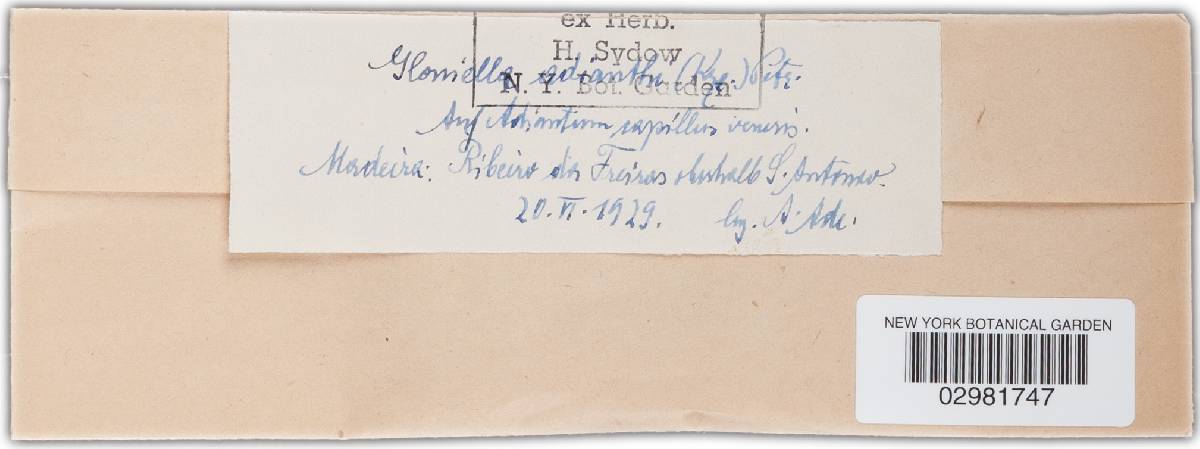 ex Herb.
H. Sydow
N. Y. Bot. Garden
Gloniella adianthi (Kze.) Petr.
Auf Adiantum capillus veneris.
Madeira: Ribeiro das Freiras oberhalb S. Antonao.
20.VI.1929. leg. A. Ade.
NEW YORK BOTANICAL GARDEN
02981747